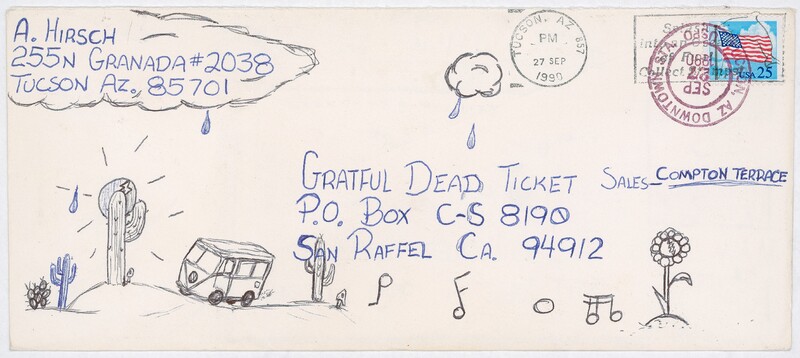 A. HIRSCH
255N GRANADA #2038
TUCSON AZ. 85701
TUCSON, AZ 857
PM
27 SEP
1990
USA 25
SEP
27
1990
AZ DOWNTOWN STA.
USPO
GRATFUL DEAD TICKET SALES - COMPTON TERRACE
P.O. BOX C-S 8190
SAN RAFFEL CA. 94912